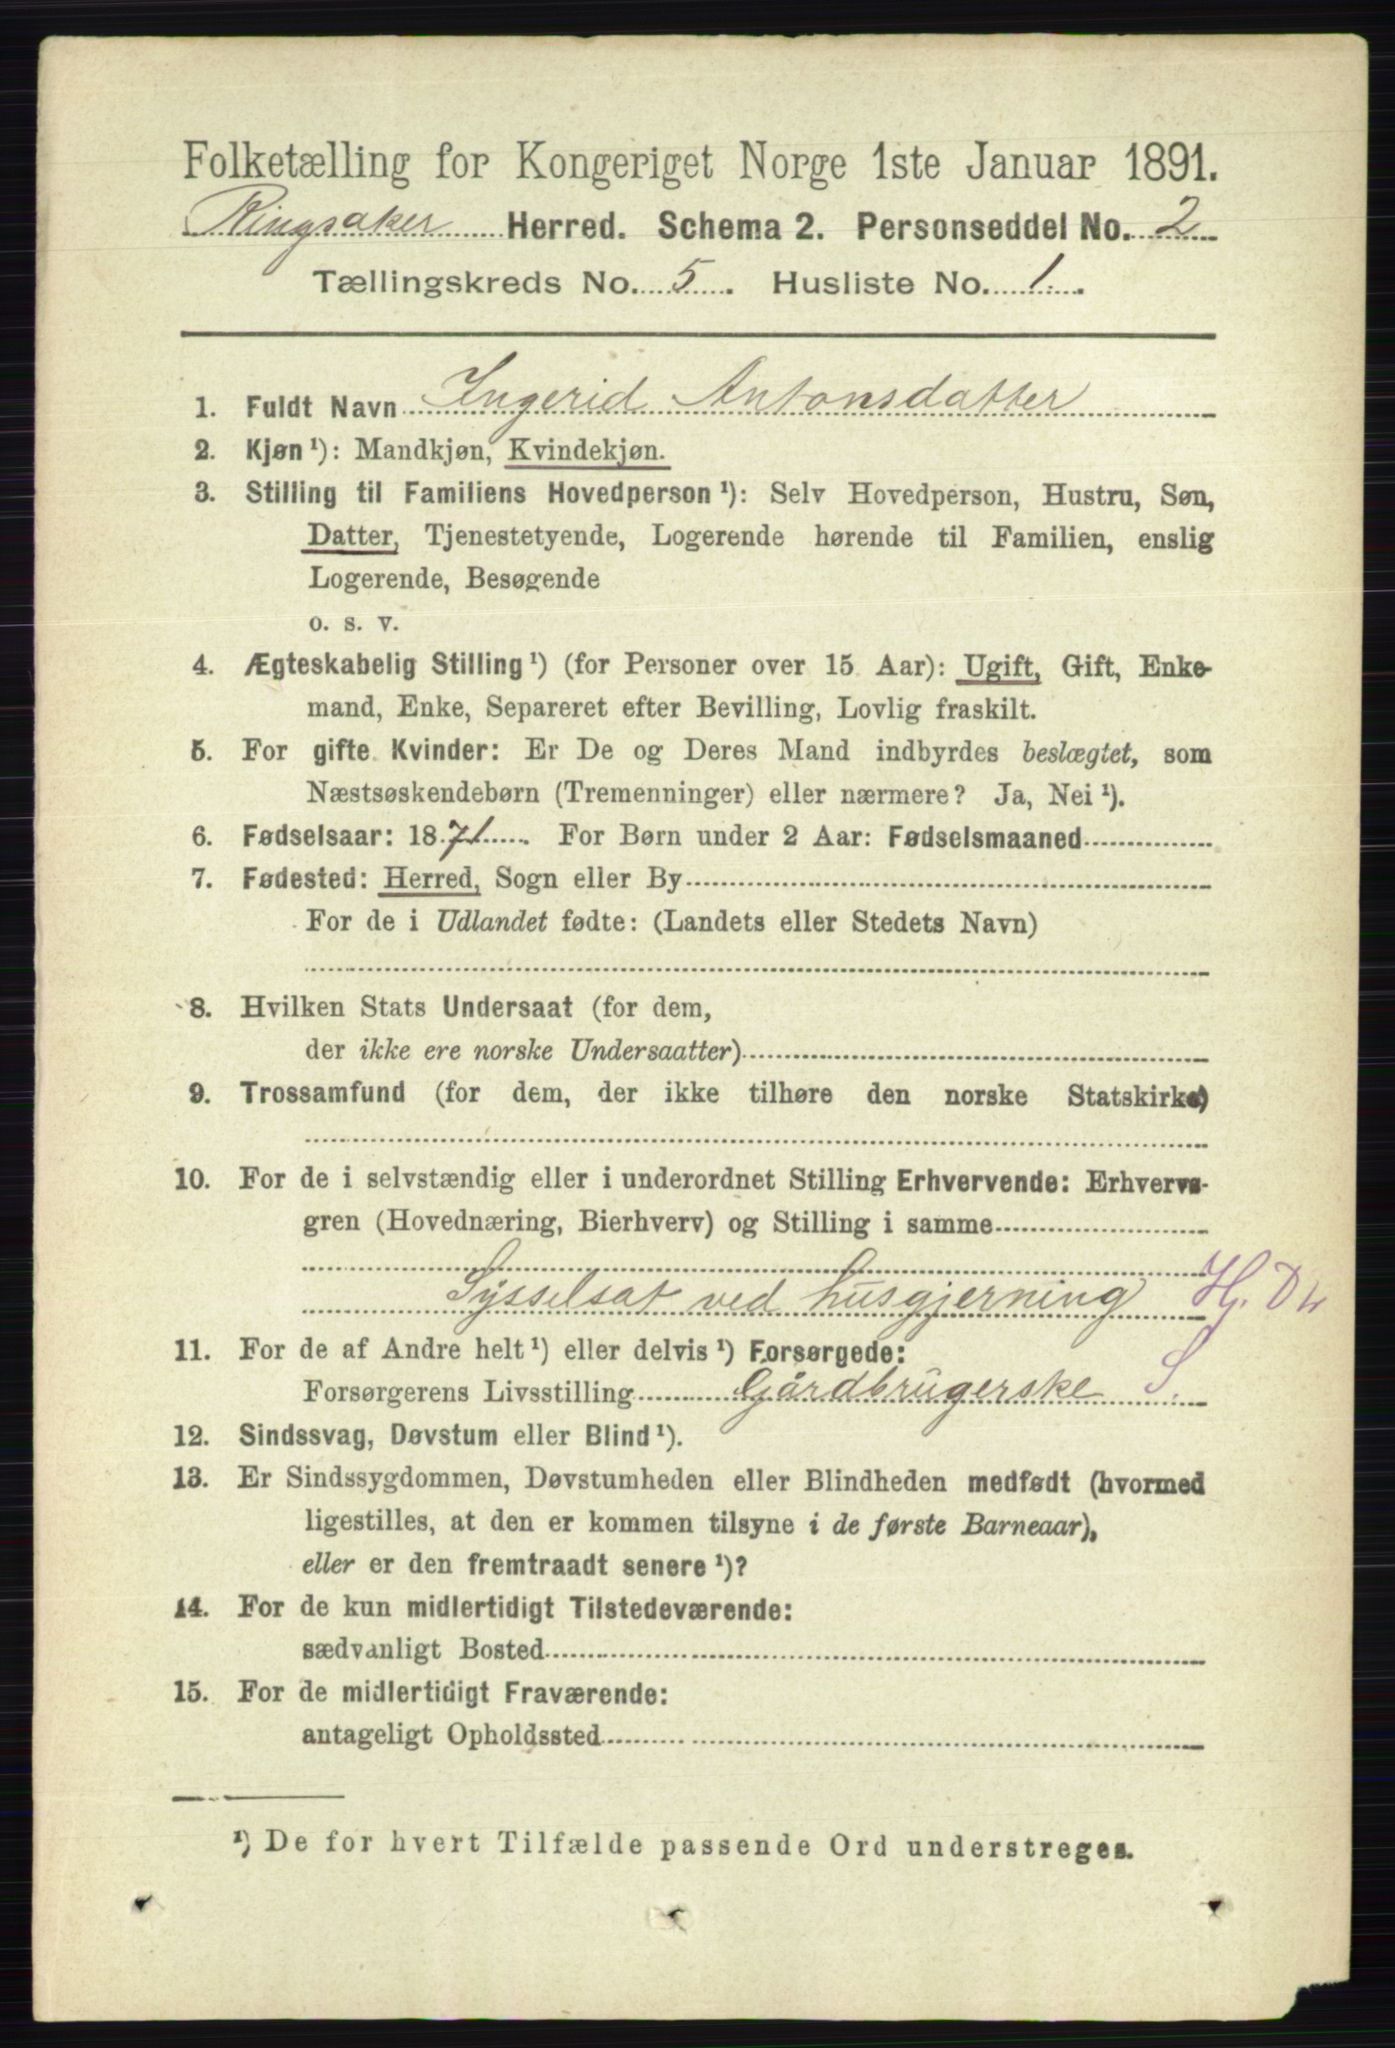 Folketælling for Kongeriget Norge 1ste Januar 1891.
Ringsaker Herred. Schema 2. Personseddel No. 2
Tællingskreds No. 5. Husliste No. 1.
1. Fuldt Navn Ingerid Antonsdatter
2. Kjøn ¹): Mandkjøn, Kvindekjøn.
3. Stilling til Familiens Hovedperson ¹): Selv Hovedperson, Hustru, Søn,
Datter, Tjenestetyende, Logerende hørende til Familien, enslig
Logerende, Besøgende
o. s. v.
4. Ægteskabelig Stilling ¹) (for Personer over 15 Aar): Ugift, Gift, Enke-
mand, Enke, Separeret efter Bevilling, Lovlig fraskilt.
5. For gifte Kvinder: Er De og Deres Mand indbyrdes beslægtet, som
Næstsøskendebørn (Tremenninger) eller nærmere? Ja, Nei ¹).
6. Fødselsaar: 1871. For Børn under 2 Aar: Fødselsmaaned
7. Fødested: Herred, Sogn eller By
For de i Udlandet fødte: (Landets eller Stedets Navn)
8. Hvilken Stats Undersaat (for dem,
der ikke ere norske Undersaatter)
9. Trossamfund (for dem, der ikke tilhøre den norske Statskirke)
10. For de i selvstændig eller i underordnet Stilling Erhvervende: Erhvervs-
gren (Hovednæring, Bierhverv) og Stilling i samme
Sysselsat ved husgjerning H. D
11. For de af Andre helt ¹) eller delvis ¹) Forsørgede:
Forsørgerens Livsstilling Gårdbrugerske S.
12. Sindssvag, Døvstum eller Blind ¹).
13. Er Sindssygdommen, Døvstumheden eller Blindheden medfødt (hvormed
ligestilles, at den er kommen tilsyne i de første Barneaar),
eller er den fremtraadt senere ¹)?
14. For de kun midlertidigt Tilstedeværende:
sædvanligt Bosted
15. For de midlertidigt Fraværende:
antageligt Opholdssted
¹) De for hvert Tilfælde passende Ord understreges.